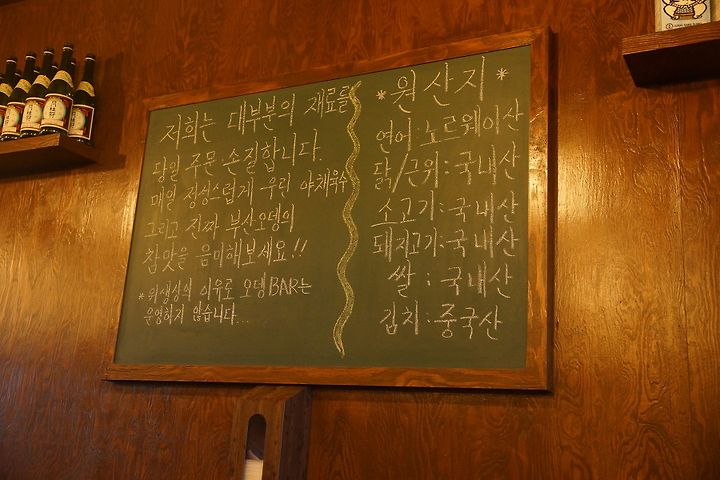 저희는 대부분의 재료를
당일 주문·손질합니다.
매일 정성스럽게 우린 야채육수
그리고 진짜 부산오뎅의
참맛을 음미해보세요!!
*위생상의 이유로 오뎅BAR는
운영하지 않습니다...
*원산지*
연어:노르웨이산
닭/근위:국내산
소고기:국내산
돼지고기:국내산
쌀:국내산
김치:중국산